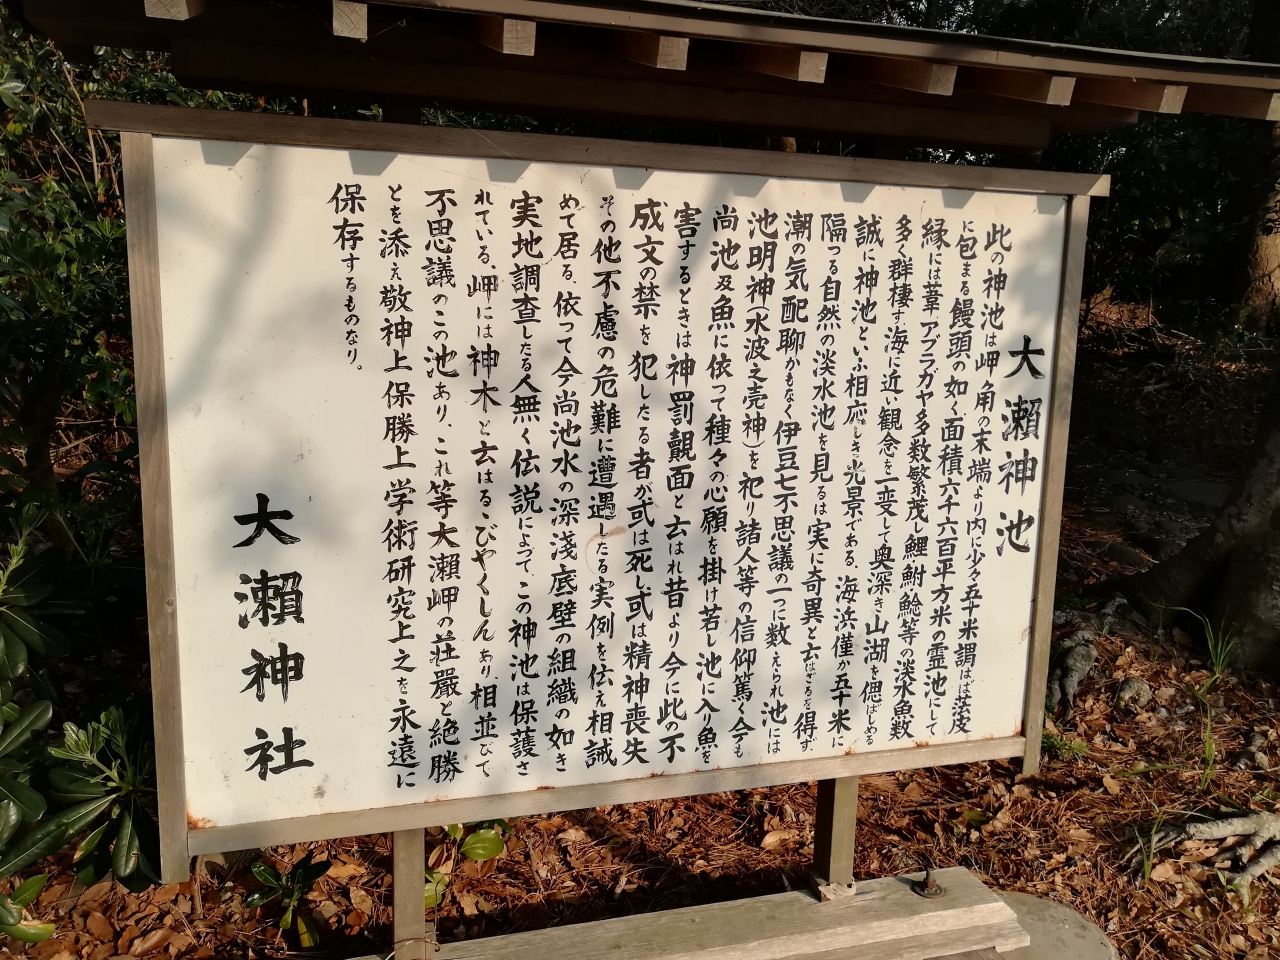 大瀬神池
此の神池は岬角の末端より内に少々五十米謂はば法皮
に包まる饅頭の如く面積六千六百平方米の霊池にして
縁には葦アブラガヤ多数繁茂し鯉鮒鯰等の淡水魚数
多く群棲す海に近い観念を一変して奥深き山湖を偲ばしめる
誠に神池といふ相応しき光景である、海浜僅か五十米に
隔つる自然の淡水池を見るは実に奇異と云はざるを得ず、
潮の気配聊かもなく伊豆七不思議の一つに数えられ池には
池明神(水波之売神)を祀り諸人等の信仰篤く今も
尚池及魚に依って種々の心願を掛け若し池に入り魚を
害するときは神罰覿面と云はれ昔より今に此の不
成文の禁を犯したる者が或は死し或は精神喪失
その他不慮の危難に遭遇したる実例を伝え相誡
めて居る、依って今尚池水の深淺底壁の組織の如き
実地調査したる人無く伝説によって、この神池は保護さ
れている、岬には神木と云はるゝびやくしんあり、相並びて
不思議のこの池あり、これ等大瀬岬の荘嚴と絶勝
とを添え敬神上保勝上学術研究上之を永遠に
保存するものなり。
大瀬神社